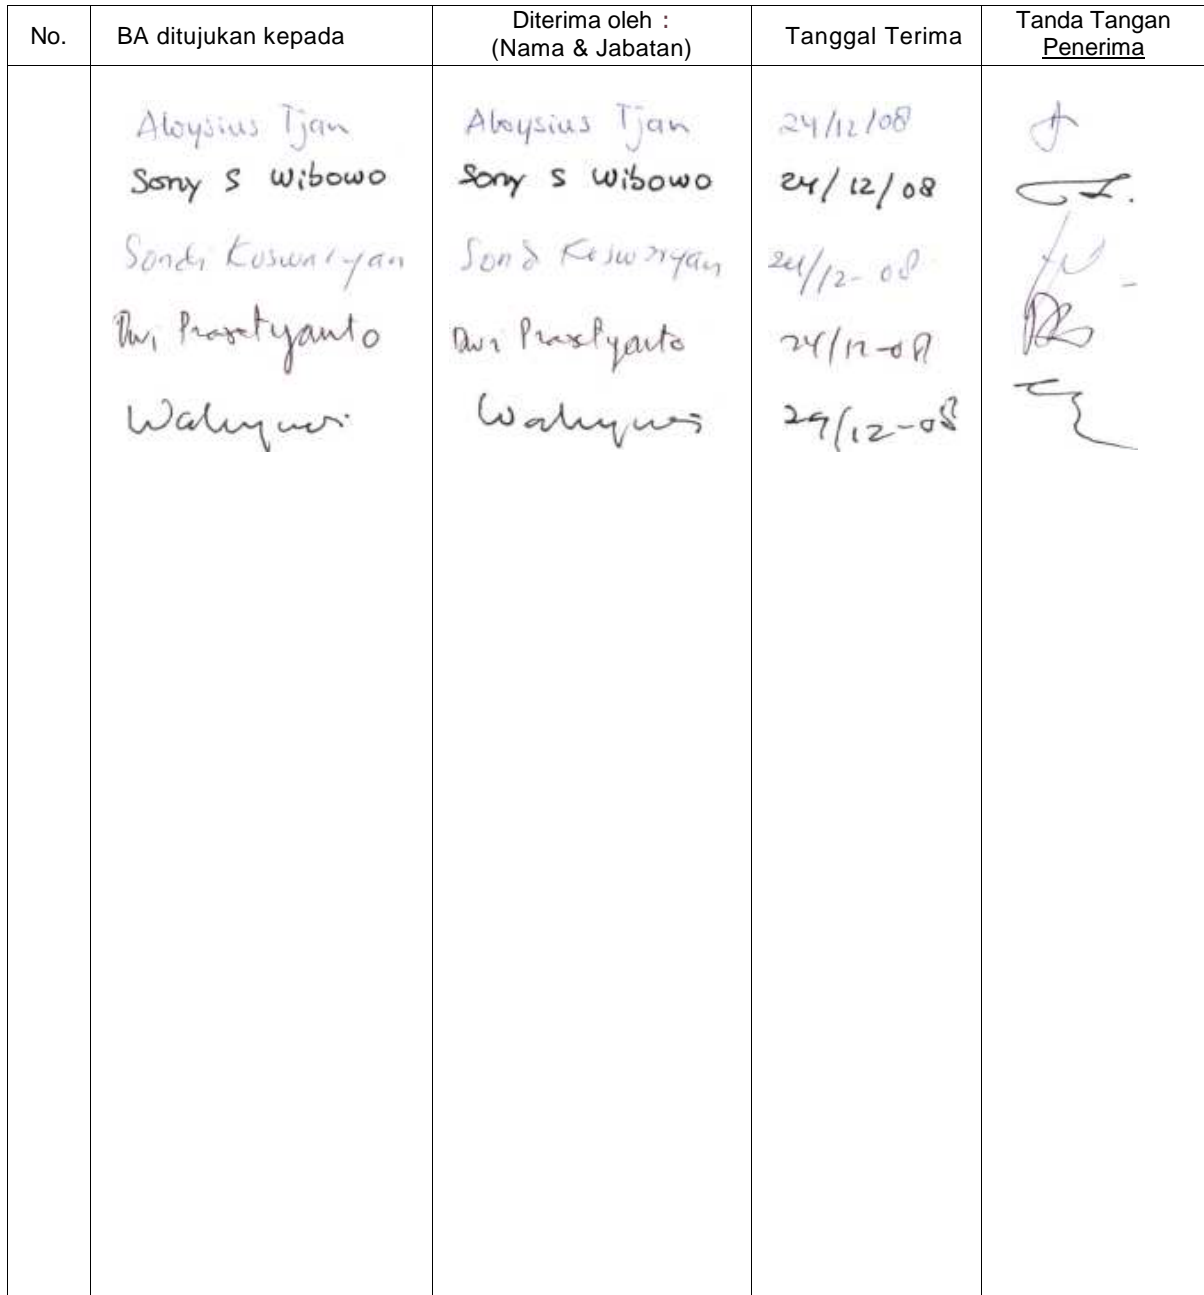 No. BA ditujukan kepada Diterima oleh : (Nama & Jabatan) Tanggal Terima Tanda Tangan Penerima
Aloysius Tjan Aloysius Tjan 24/12/08
Sony S Wibowo Sony S Wibowo 24/12/08
Sondi Kuswaryan Sondi Kuswaryan 24/12-08
Dwi Prasetyanto Dwi Prasetyanto 24/12-08
29/12-08